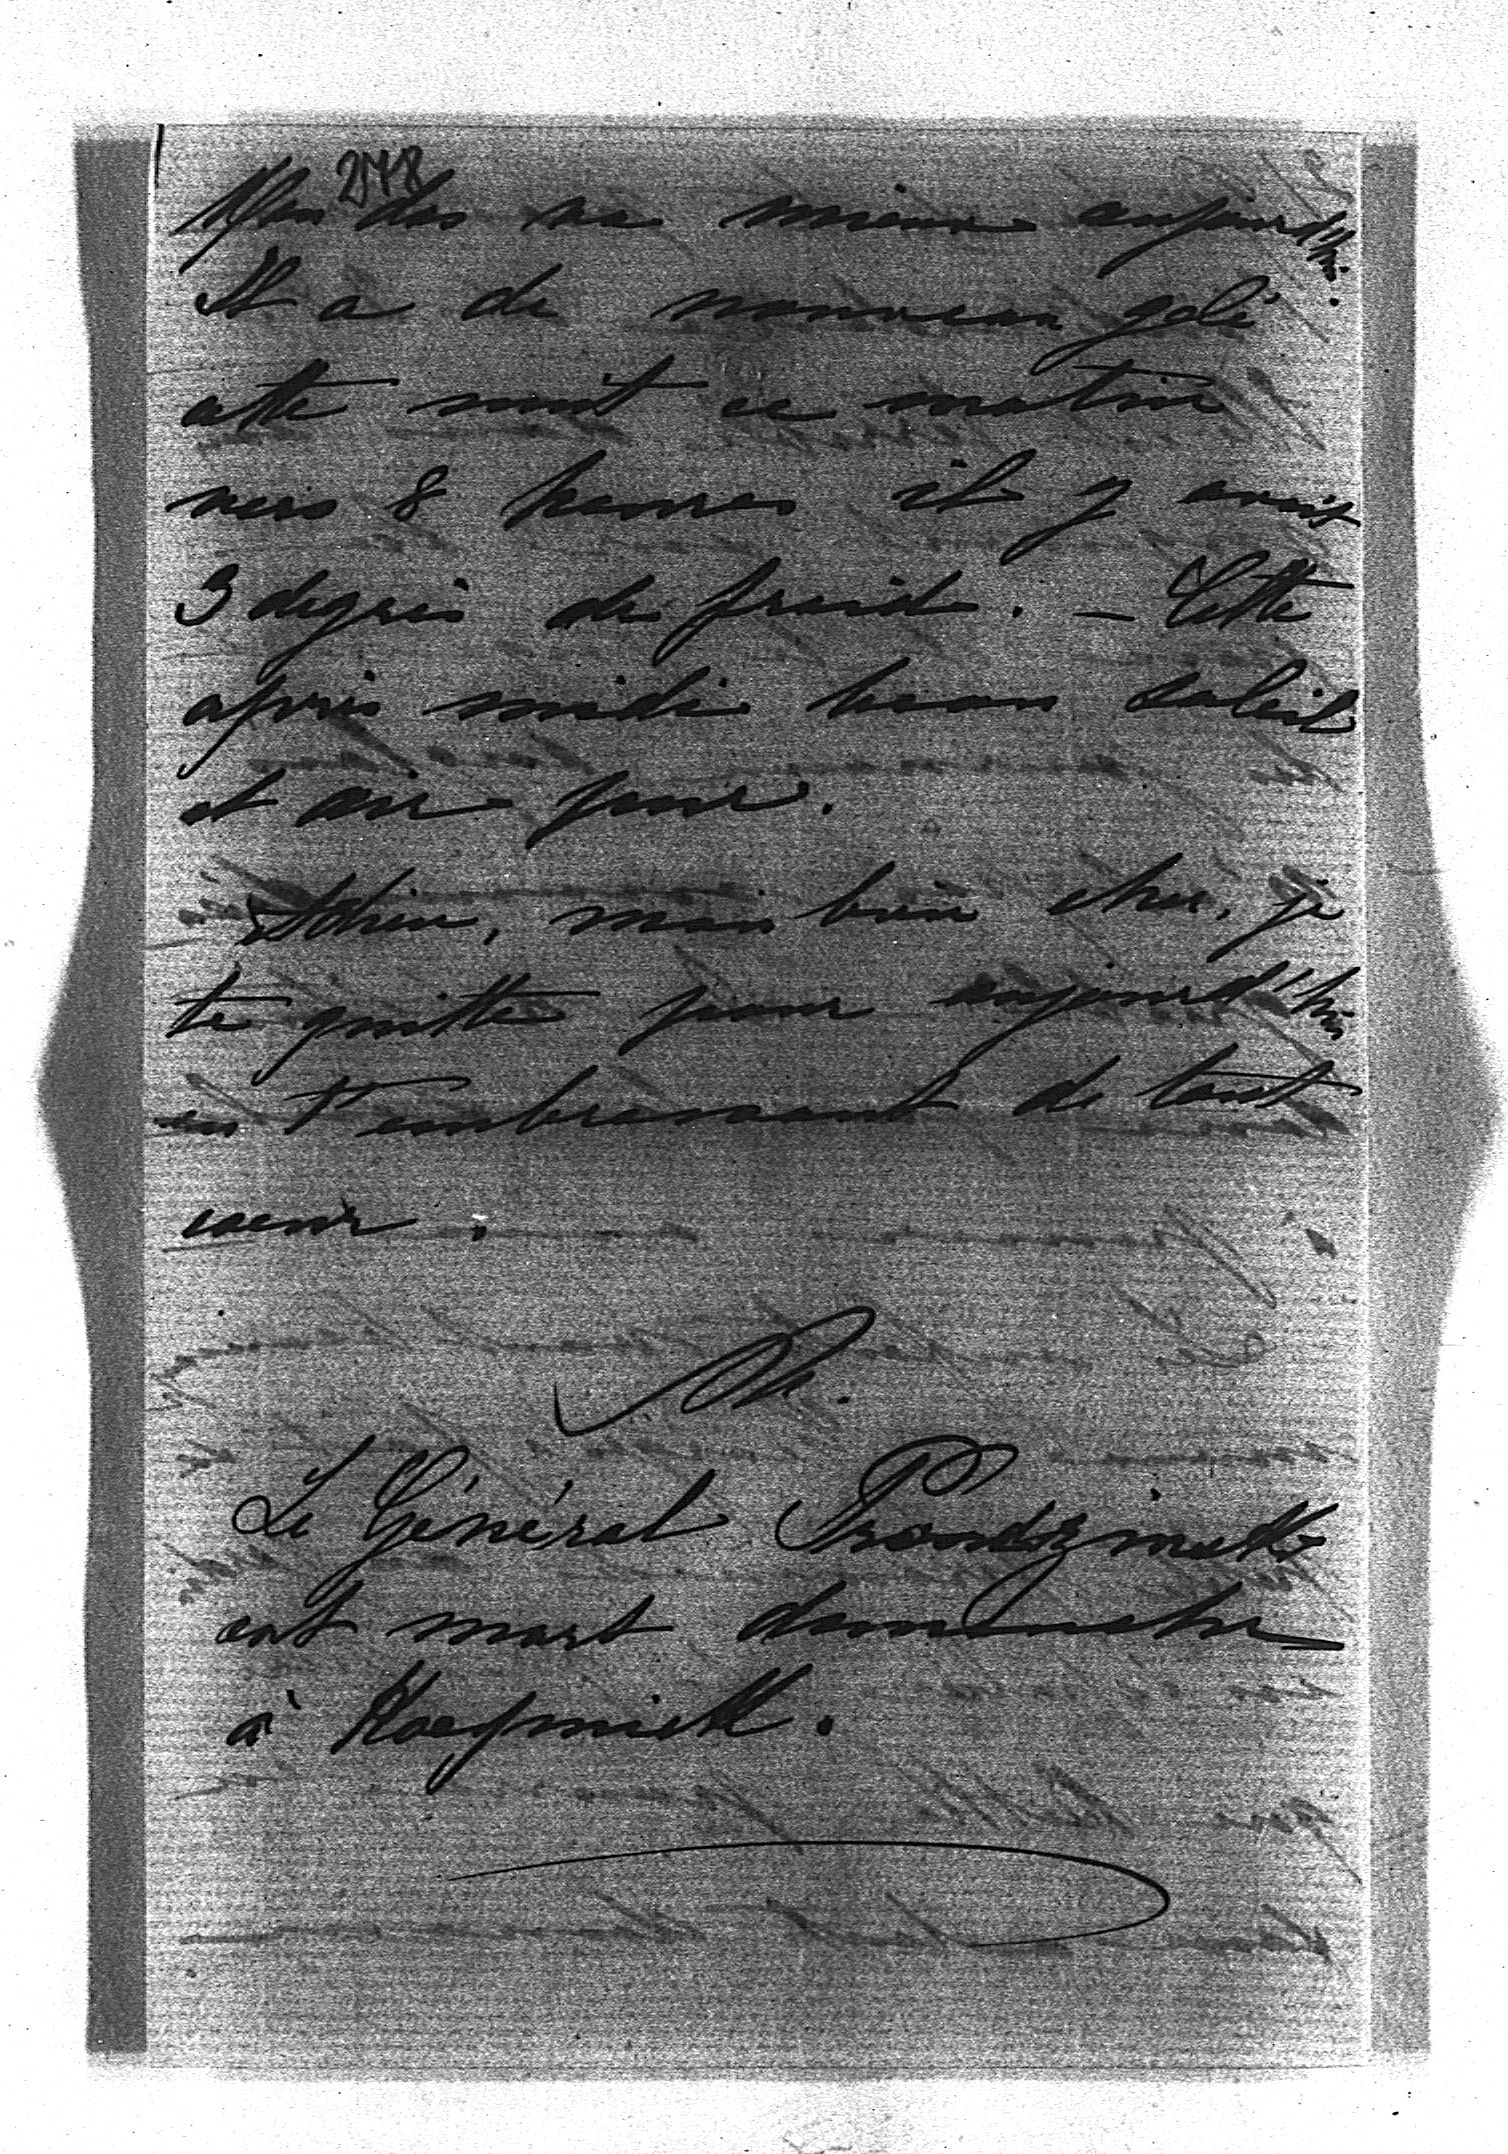 278
Mon dos va mieux aujourd'hui.
Il a de nouveau gelé
cette nuit ce matin
vers 8 heures il y avait
3 degrés de froid. — Cette
après midi beau soleil
et air pur.
Adieu, mon bien cher, je
te quitte pour aujourd'hui
en t'embrassant de tout
coeur.
M.
Le Général Prondzinski
est mort dimanche
à